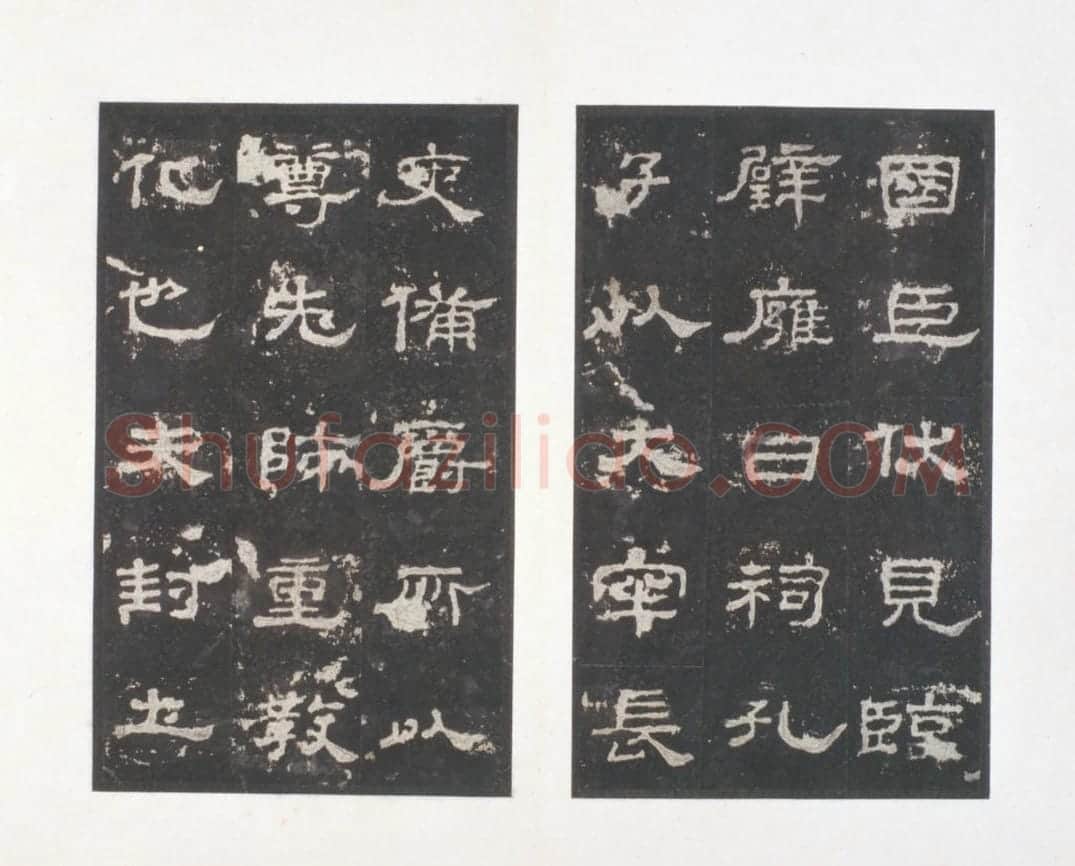 國臣伏見臨
璧廱日祠孔
子以大宰長
吏備爵所以
尊先師重教
化也夫封土
Shufaziliao.COM